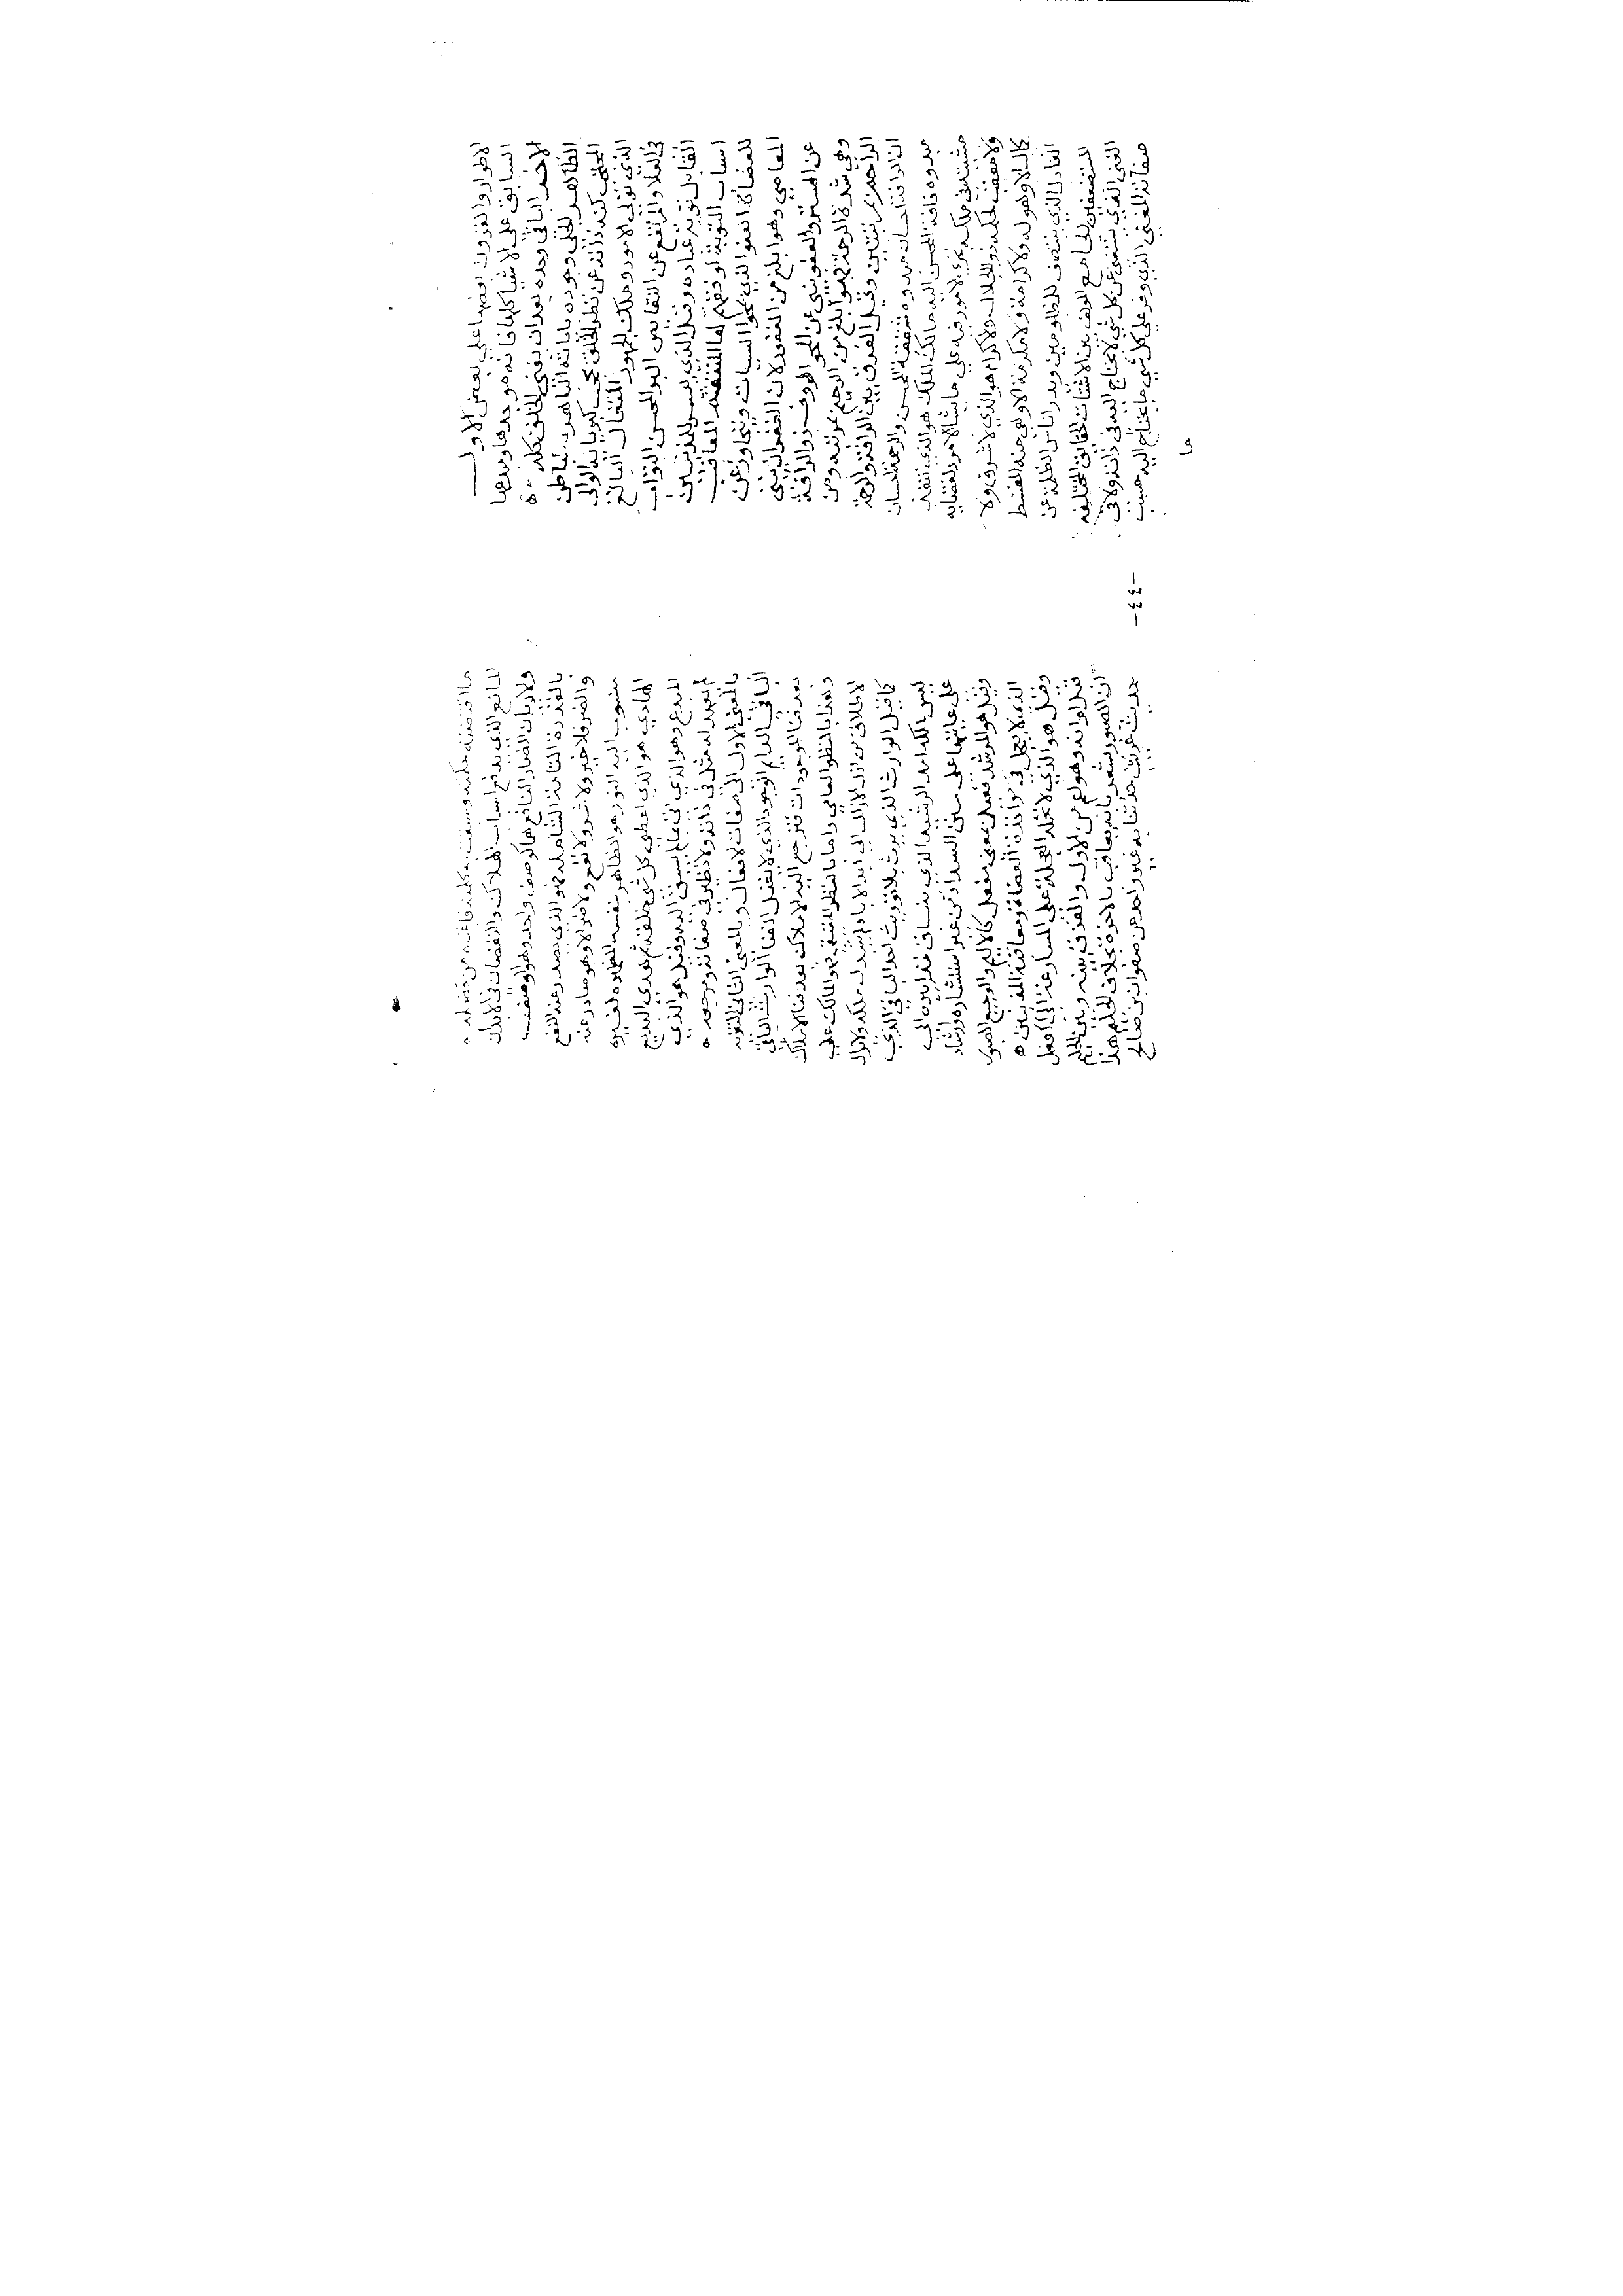 الاطوار والقرون بعضها على بعض الاول
السابق على الاشيا كلها فانه موجدها ومبدعها
الاخر الباقي وحده بعد ان يفنى الخلق كله ه
الظاهر الجلي وجوده باياته الباهره الباطن
المحتجب كنه ذاته عن نظر الخلق بحجب كبريائه الوالي
الذي تولى الامور وملك الجمهور المتعال البالغ
في العلا والمرتفع عن النقايص البر المحسن التواب
القابل توبة عباده وقيل الذي ييسر للمذنبين
اسباب التوبة ويوفقهم لها المنتقم المعاقب
للعصاة العفو الذي يمحو السيات ويتجاوز عن
المعاصي وهو ابلغ من الغفور لان الغفران ينبئ
عن الستر والعفو ينبئ عن المحو الرووف ذو الرافة
وهي شدة الرحمة فهو ابلغ من الرحيم بمرتبة ومن
الراحم بمرتبتين وقيل الفرق بين الرافة والرحمة
ان الرافة احسان مبدوه شفقة المحسن والرحمة احسان
مبدوه فاقة المحسن اليه مالك الملك هو الذي تنفذ
مشيئته في ملكه يجري الامور فيه على ما يشا لا مرد لقضايه
ولا معقب لحكمه ذو الجلال والاكرام هو الذي لا شرف ولا
كمال الا وهو له ولا كرامة ولا مكرمة الا وهي منه المقسط
العادل الذي ينتصف للمظلومين ويدرا باس الظلمة عن
المستضعفين الجامع المولف بين الاشتات الحقايق المختلفه
الغني الذي يستغني عن كل شي لا يحتاج اليه في ذاته ولا في
صفاته المغني الذي وفر على كل شي ما يحتاج اليه حسب
ما
-٤٤-
ما اقتضته حكمته وسبقت به كلمته فاغناه من فضله ه
المانع الذي يدفع اسباب الهلاك والنقصان في الابدان
والاديان الضار النافع هما كوصف واحد وهو الوصف
بالقدرة التامة الشاملة فهو الذي يصدر عنه النفع
والضر فلا خير ولا شر ولا نفع ولا ضر الا وهو صادر عنه
منسوب اليه النور هو الظاهر بنفسه المظهر لغيره
الهادي هو الذي اعطى كل شي خلقه ثم هدى البديع
المبدع وهو الذي اتى بما لم يسبق اليه وقيل هو الذي
لم يعهد له مثل في ذاته ولا نظير في صفاته ومرجعه ه
بالمعنى الاول الى صفات الافعال وبالمعنى الثاني التنزيه
الباقي الدايم الوجود الذي لا يقبل الفنا الوارث الباقي
بعد فنا الموجودات فترجع اليه الاملاك بعد فنا الملاك
وهذا بالنظر العامي واما بالنظر الحقيقي فهو المالك على
الاطلاق من ازل الازال الى ابد الاباد لم يتبدل ملكه ولا يزال
كما قيل الوارث الذي يرث بلا توريث احد الباقي الذي
ليس لملكه امد الرشيد الذي ينساق تدابيره الى
غاياتها على سنن السداد من غير استشاره وارشاد
وقيل هو المرشد فعيل بمعنى مفعل كالاليم والوجيع الصبور
الذي لا يعجل في مواخذة العصاة ومعاقبة المذنبين ه
وقيل هو الذي لا تحمله العجلة على المسارعة الى الفعل
قبل اوانه وهو اعم من الاول والفرق بينه وبين الحليم
ان الصبور يشعر بانه يعاقب بالاخرة بخلاف الحليم هذا
حديث غريب حدثنا به غير واحد عن صفوان بن صالح